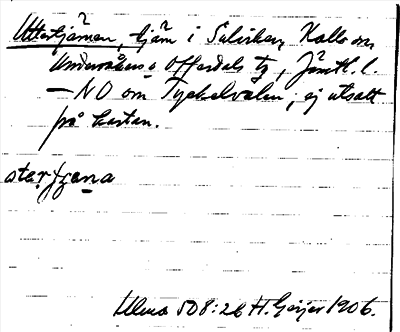 Uttertjärnen, tjärn i Selviken, Kalls o.
Undersåkers o Offerdals tg, Jämtl. l.
— NO om Tyckelvalen; ej utsatt
på kartan.
Ulma 508:26 H. Geijer 1906.